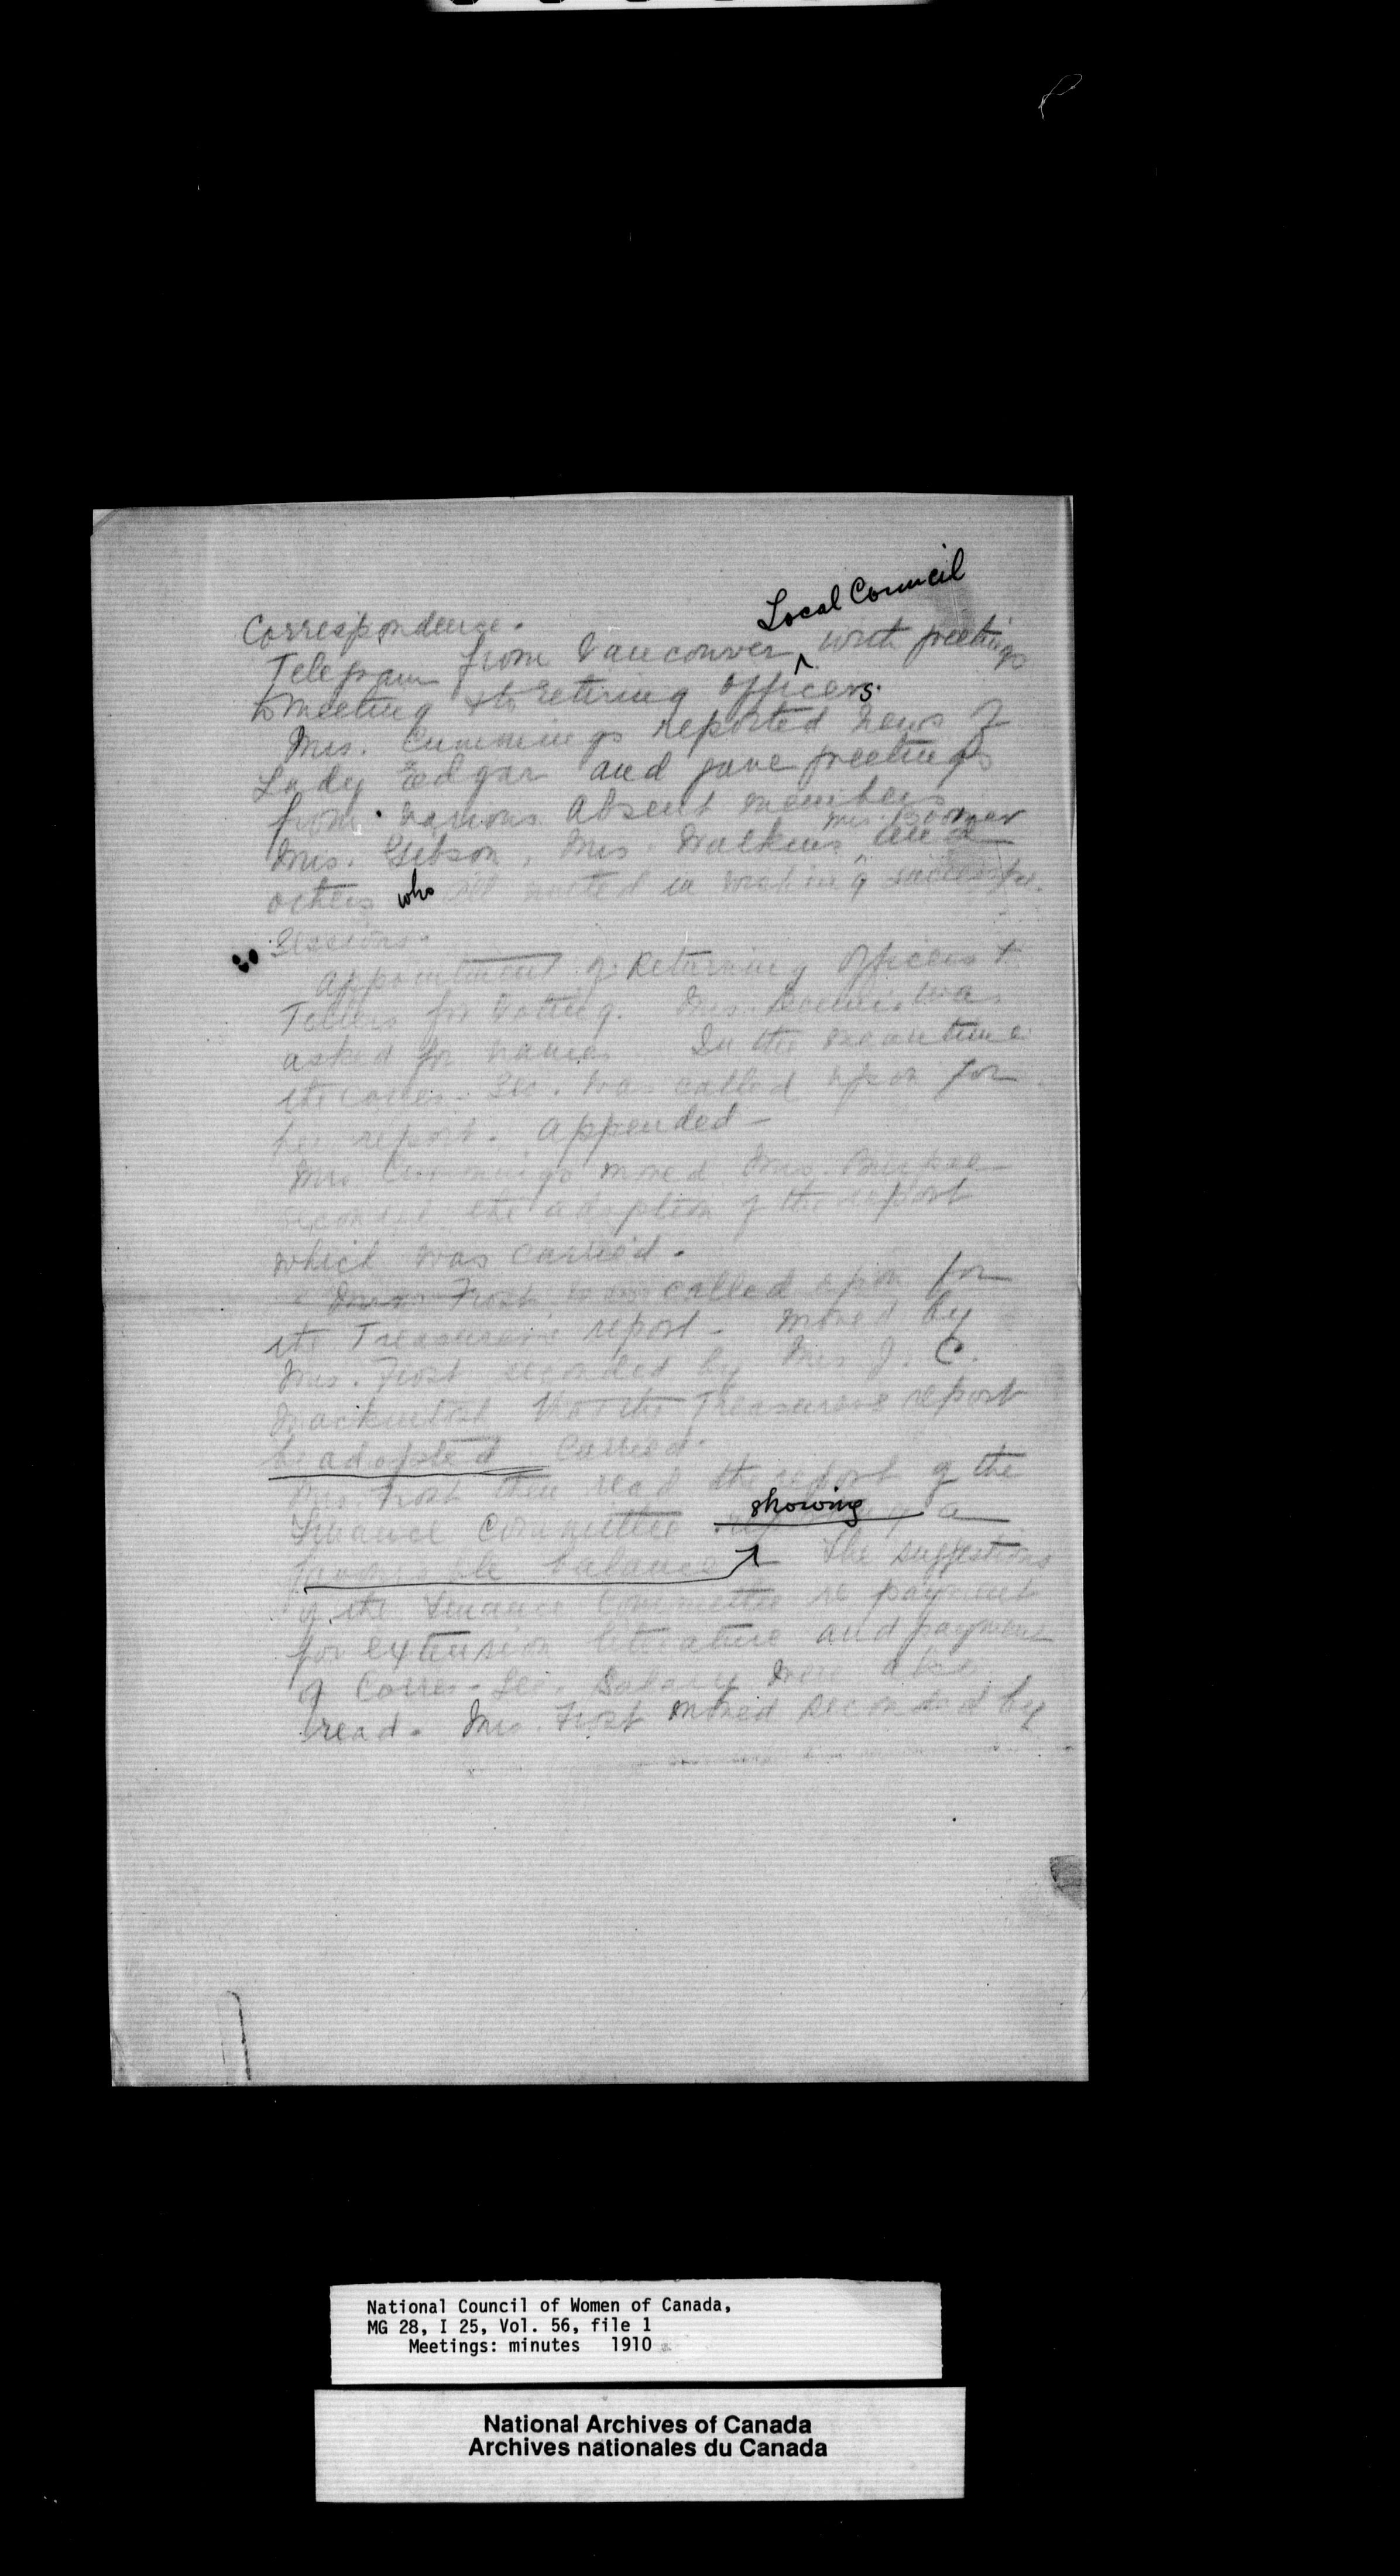 Correspondence.
Local Council
Telegram from Vancouver ^ with greetings
to meeting & to retiring officers.
Mrs. Cummings reported news of
Lady Edgar and gave greetings
from various absent members
Mrs. Boomer
Mrs. Gibson, Mrs. Watkins ^ and
others who all united in wishing successful
sessions.
Appointment of Returning Officers +
Tellers for voting. Mrs. Dennis was
asked for names. In the meantime
the Corres. Sec. was called upon for
her report. Appended -
Mrs. Cummings moved Mrs. Burpee
seconded the adoption of the report
which was carried.
Mrs. Frost was called upon for
the Treasurer's report - moved by
Mrs. Frost seconded by Mrs J. C.
Mackintosh that the Treasurers report
be adopted. Carried.
Mrs. Frost then read the report of the
showing
Finance Committee a
favourable balance The suggestions
of the Finance Committee re payment
for extension literature and payment
of Corres - Sec. Salary were also
read. Mrs. Frost moved seconded by
National Council of Women of Canada,
MG 28, I 25, Vol. 56, file 1
Meetings: minutes 1910
National Archives of Canada
Archives nationales du Canada